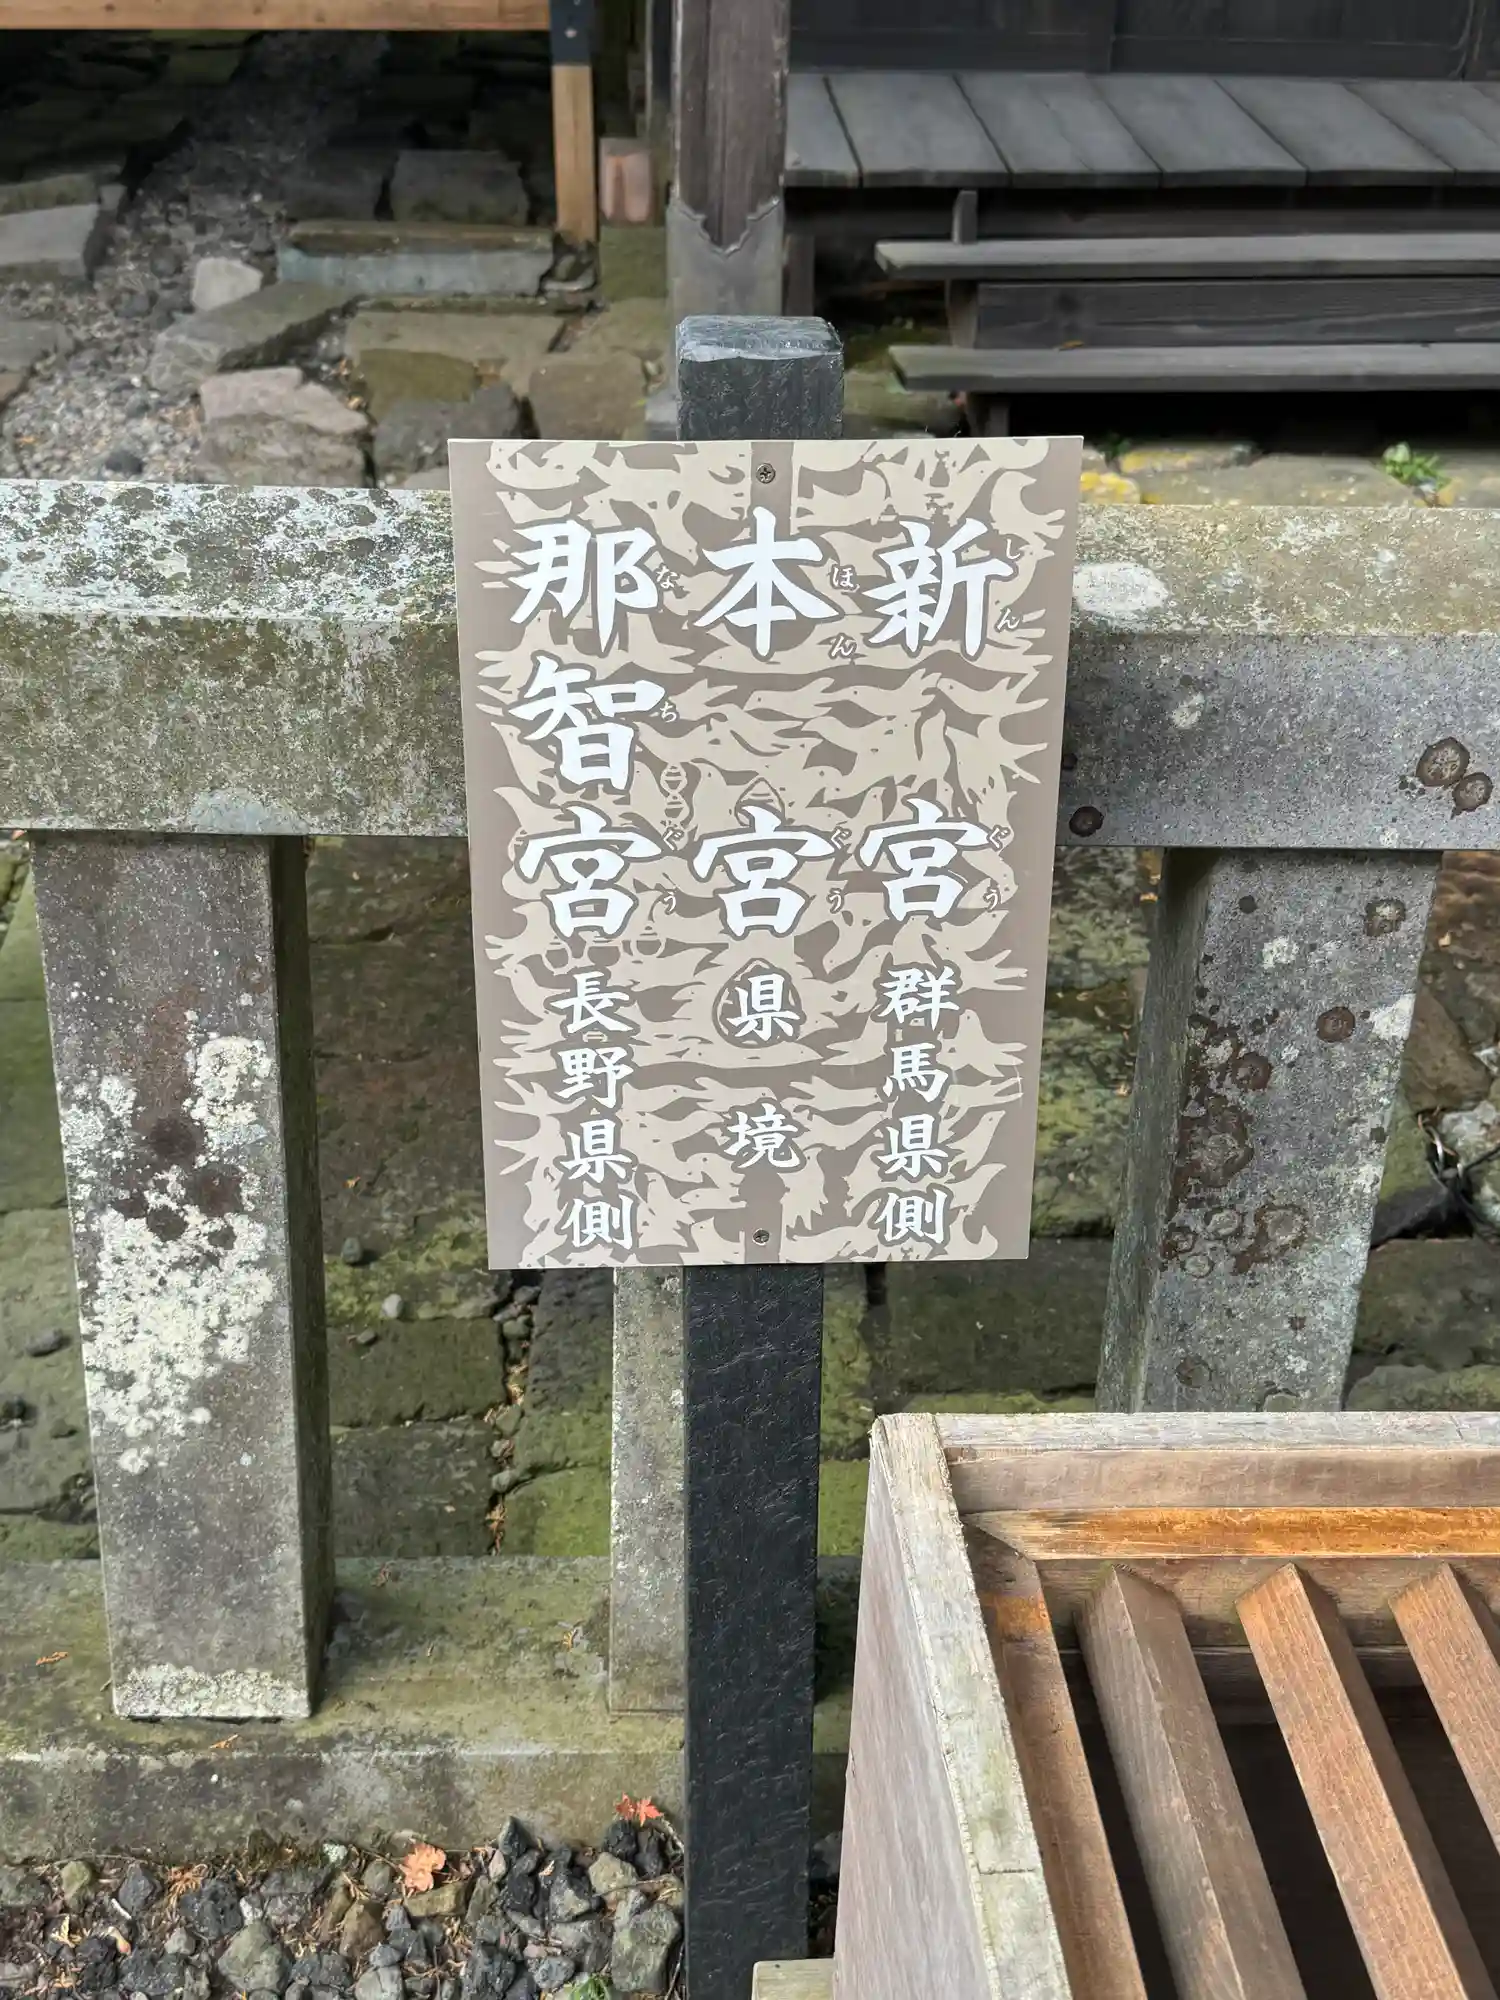 新宮 群馬県側
しんぐう
本宮 県境
ほんぐう
那智宮 長野県側
なちぐう